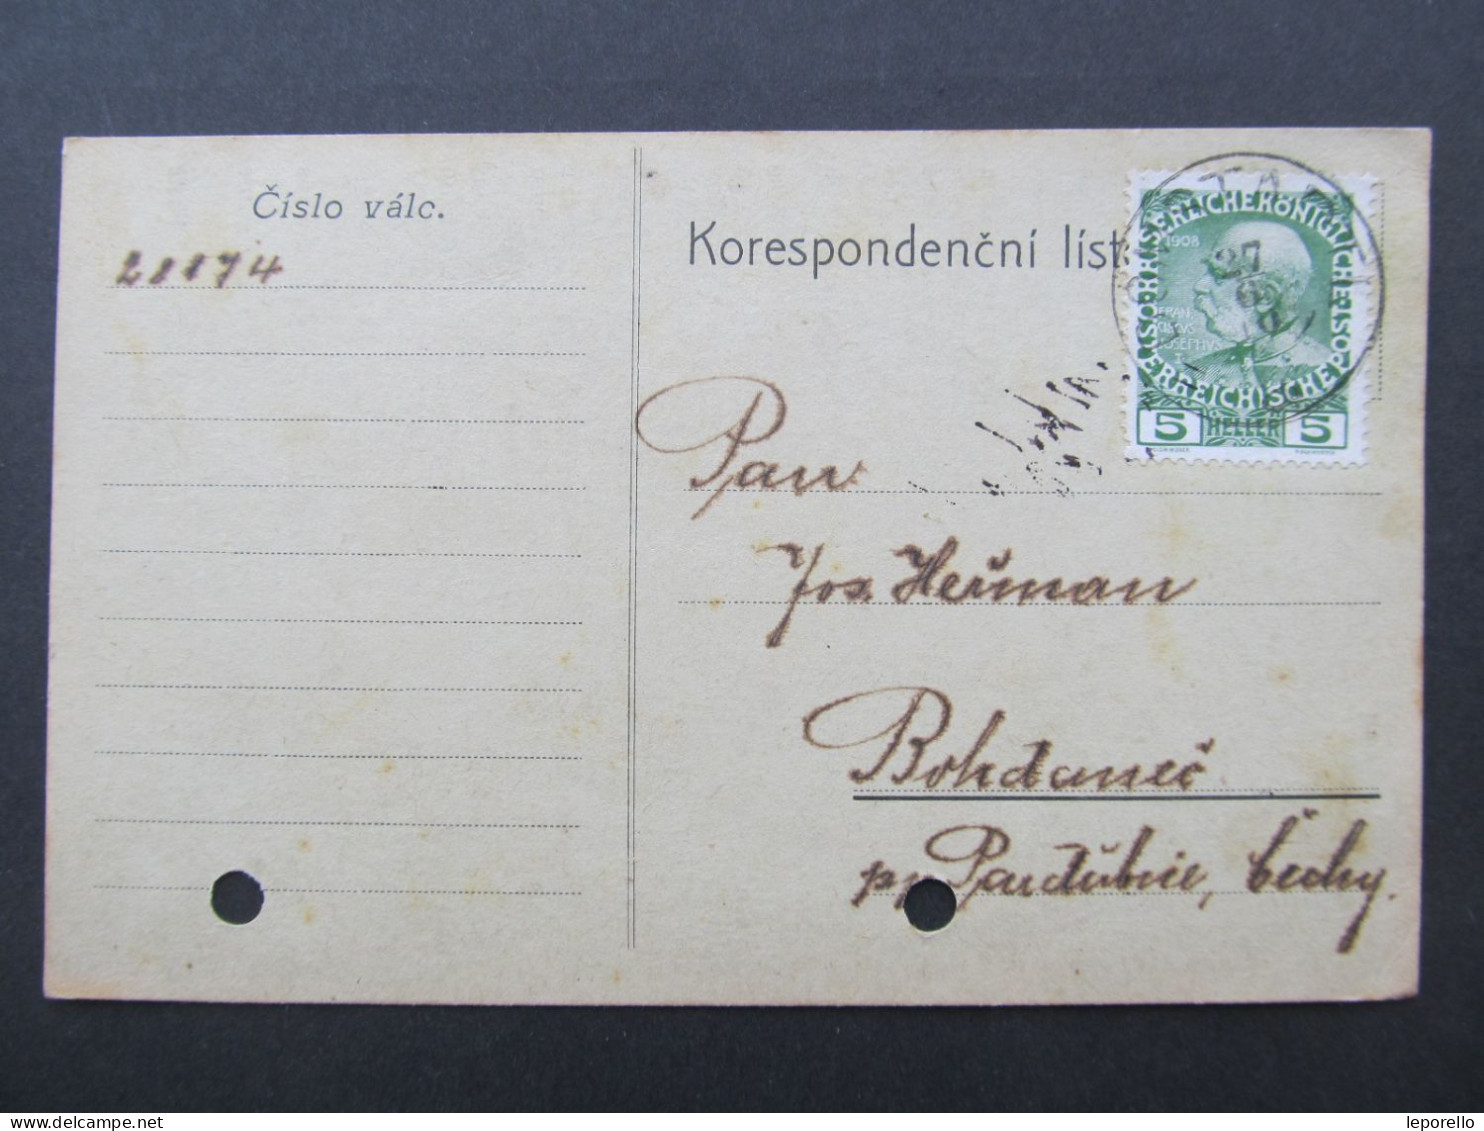 Číslo válc.
28174
Korespondenční líst
KAISERLICHE KÖNIGLICHE
ÖSTERREICHISCHE POST
1908
FRAN
JOSEPHVS
I
5 HELLER 5
27
Pan
Jos. Heřman
Bohdaneč
Pardubic, Čechy.
leporello